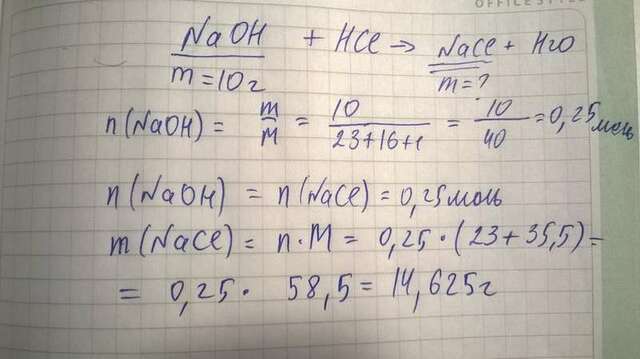 OFFICE STYLE
NaOH + HCl → NaCl + H2O
m=10г m=?
n(NaOH) = m/M = 10/23+16+1 = 10/40 = 0,25 моль
n(NaOH) = n(NaCl) = 0,25 моль
m(NaCl) = n·M = 0,25·(23+35,5)=
= 0,25· 58,5 = 14,625г